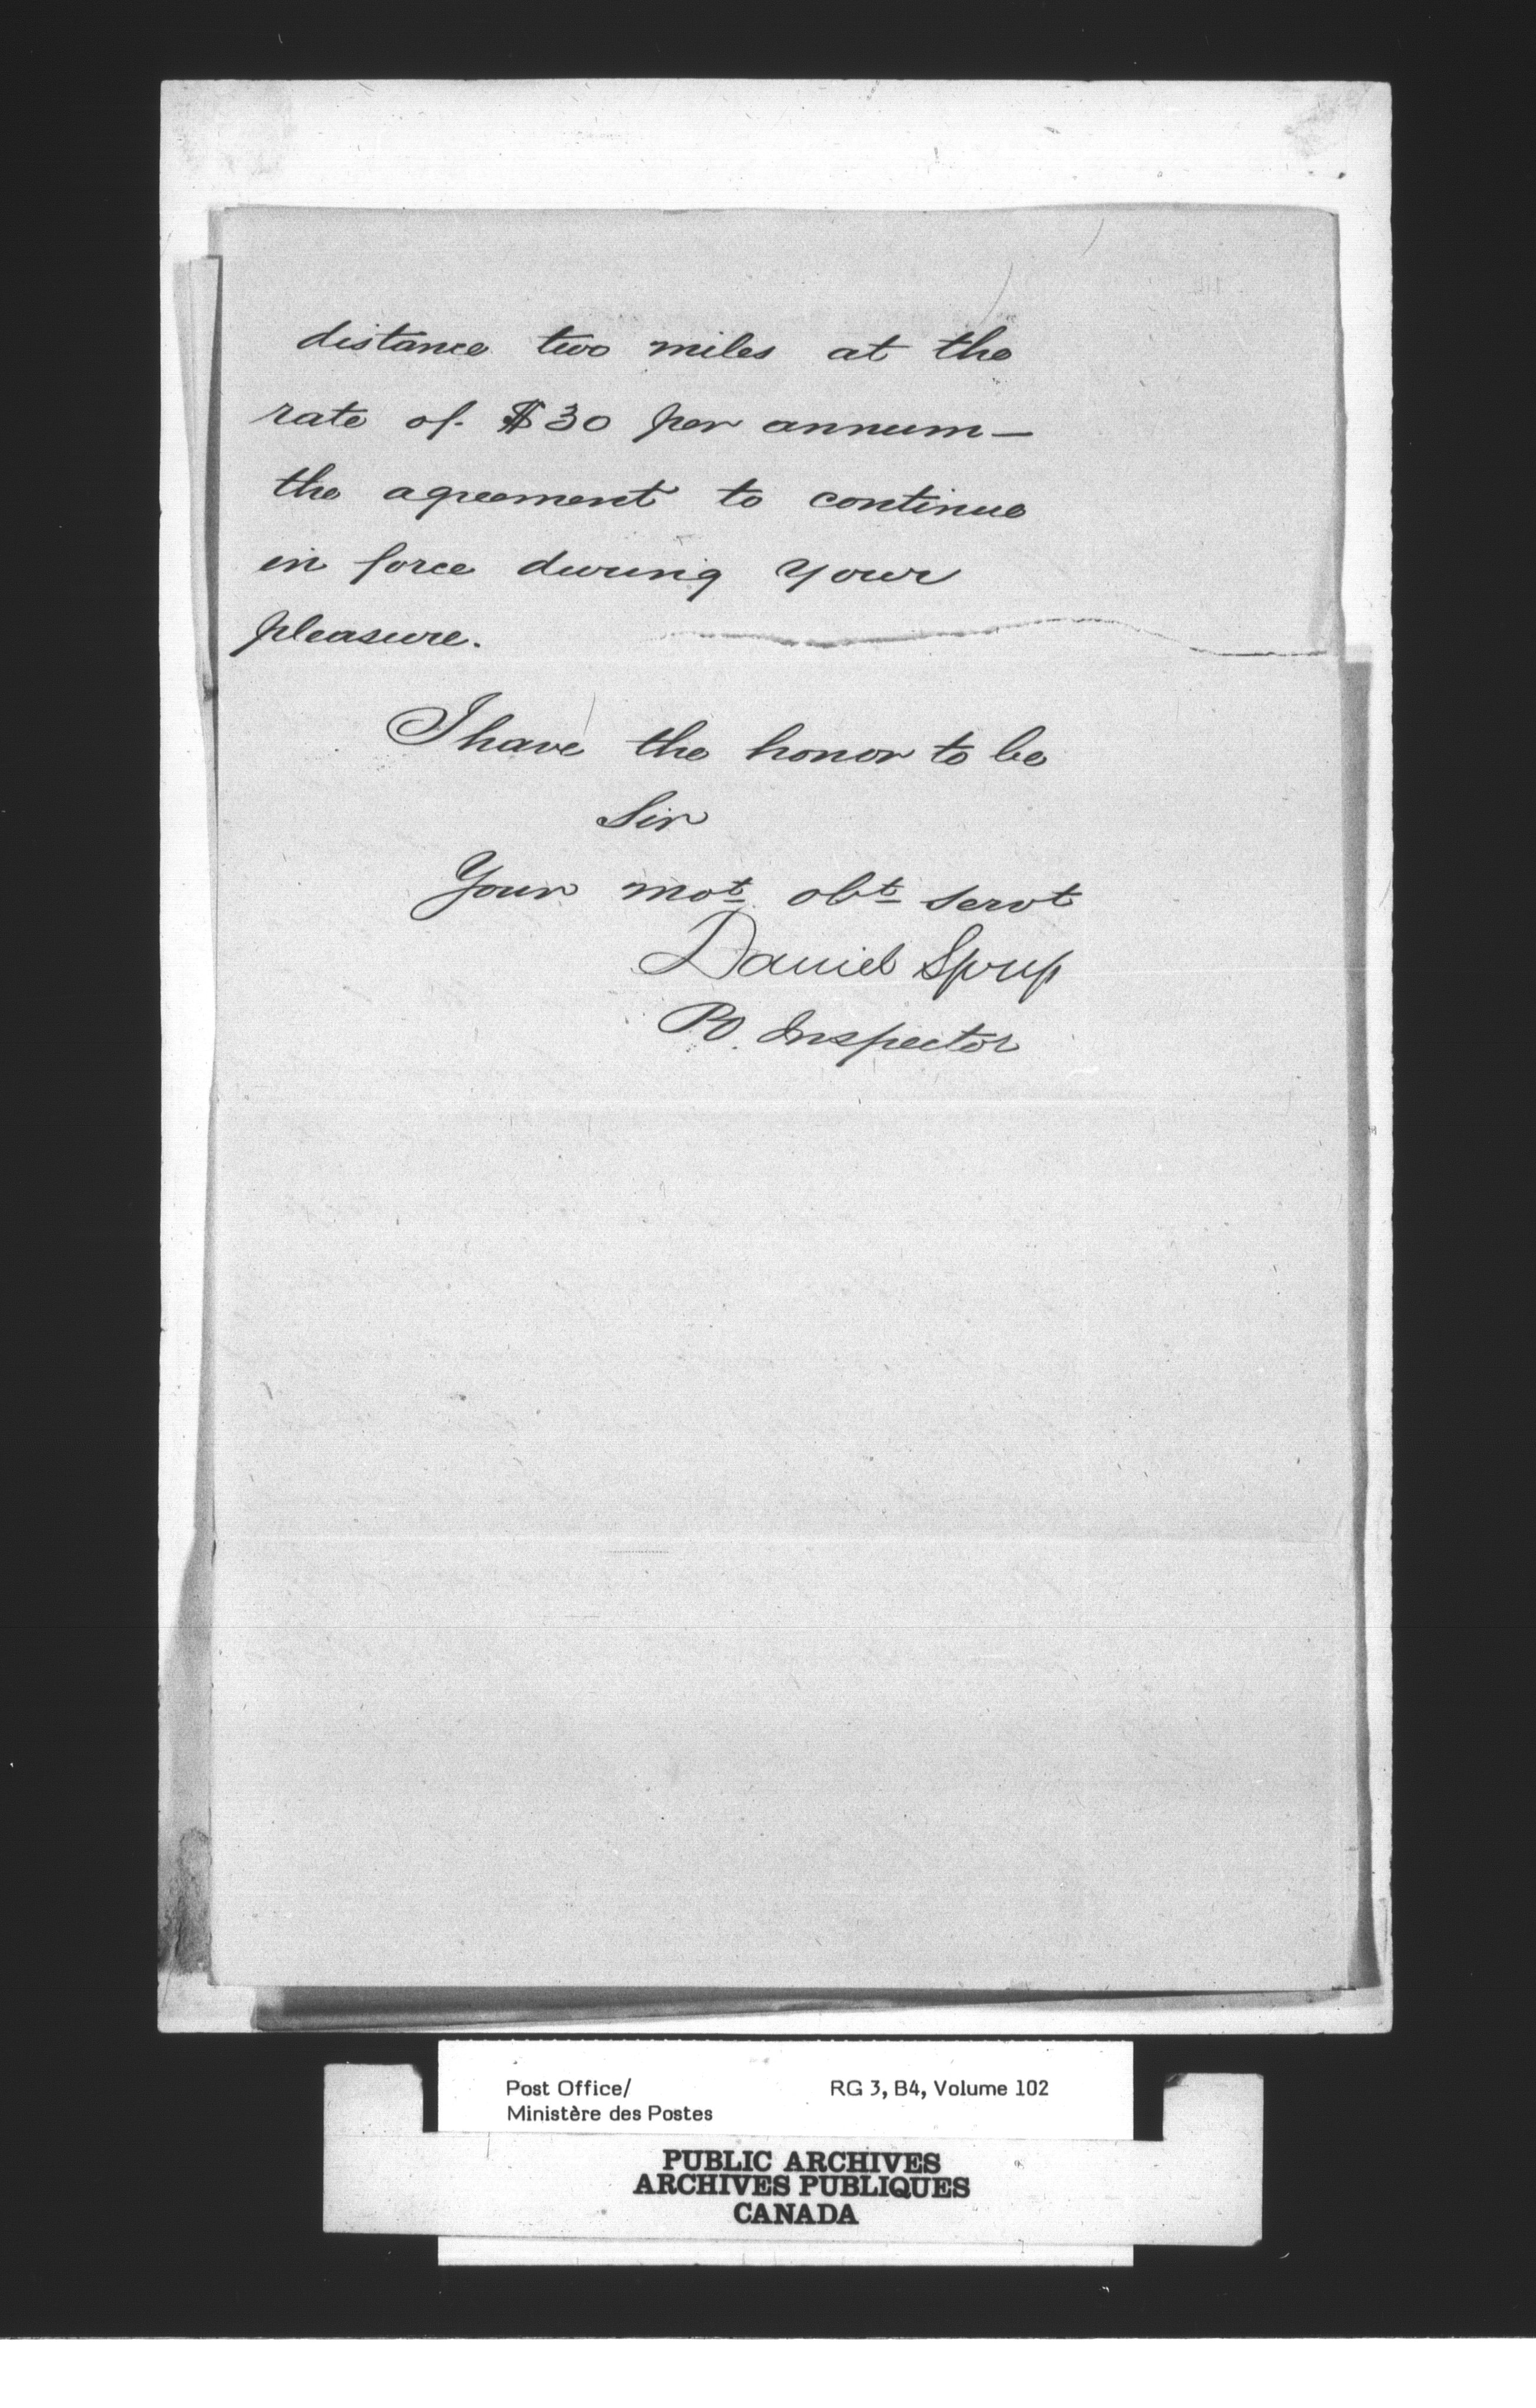 distance two miles at the
rate of $30 per annum—
the agreement to continue
in force during your
pleasure.
I have the honor to be
Sir
Your mot obt servt
Daniel Spry
P.O. Inspector
Post Office/
Ministère des Postes
RG 3, B4, Volume 102
PUBLIC ARCHIVES
ARCHIVES PUBLIQUES
CANADA